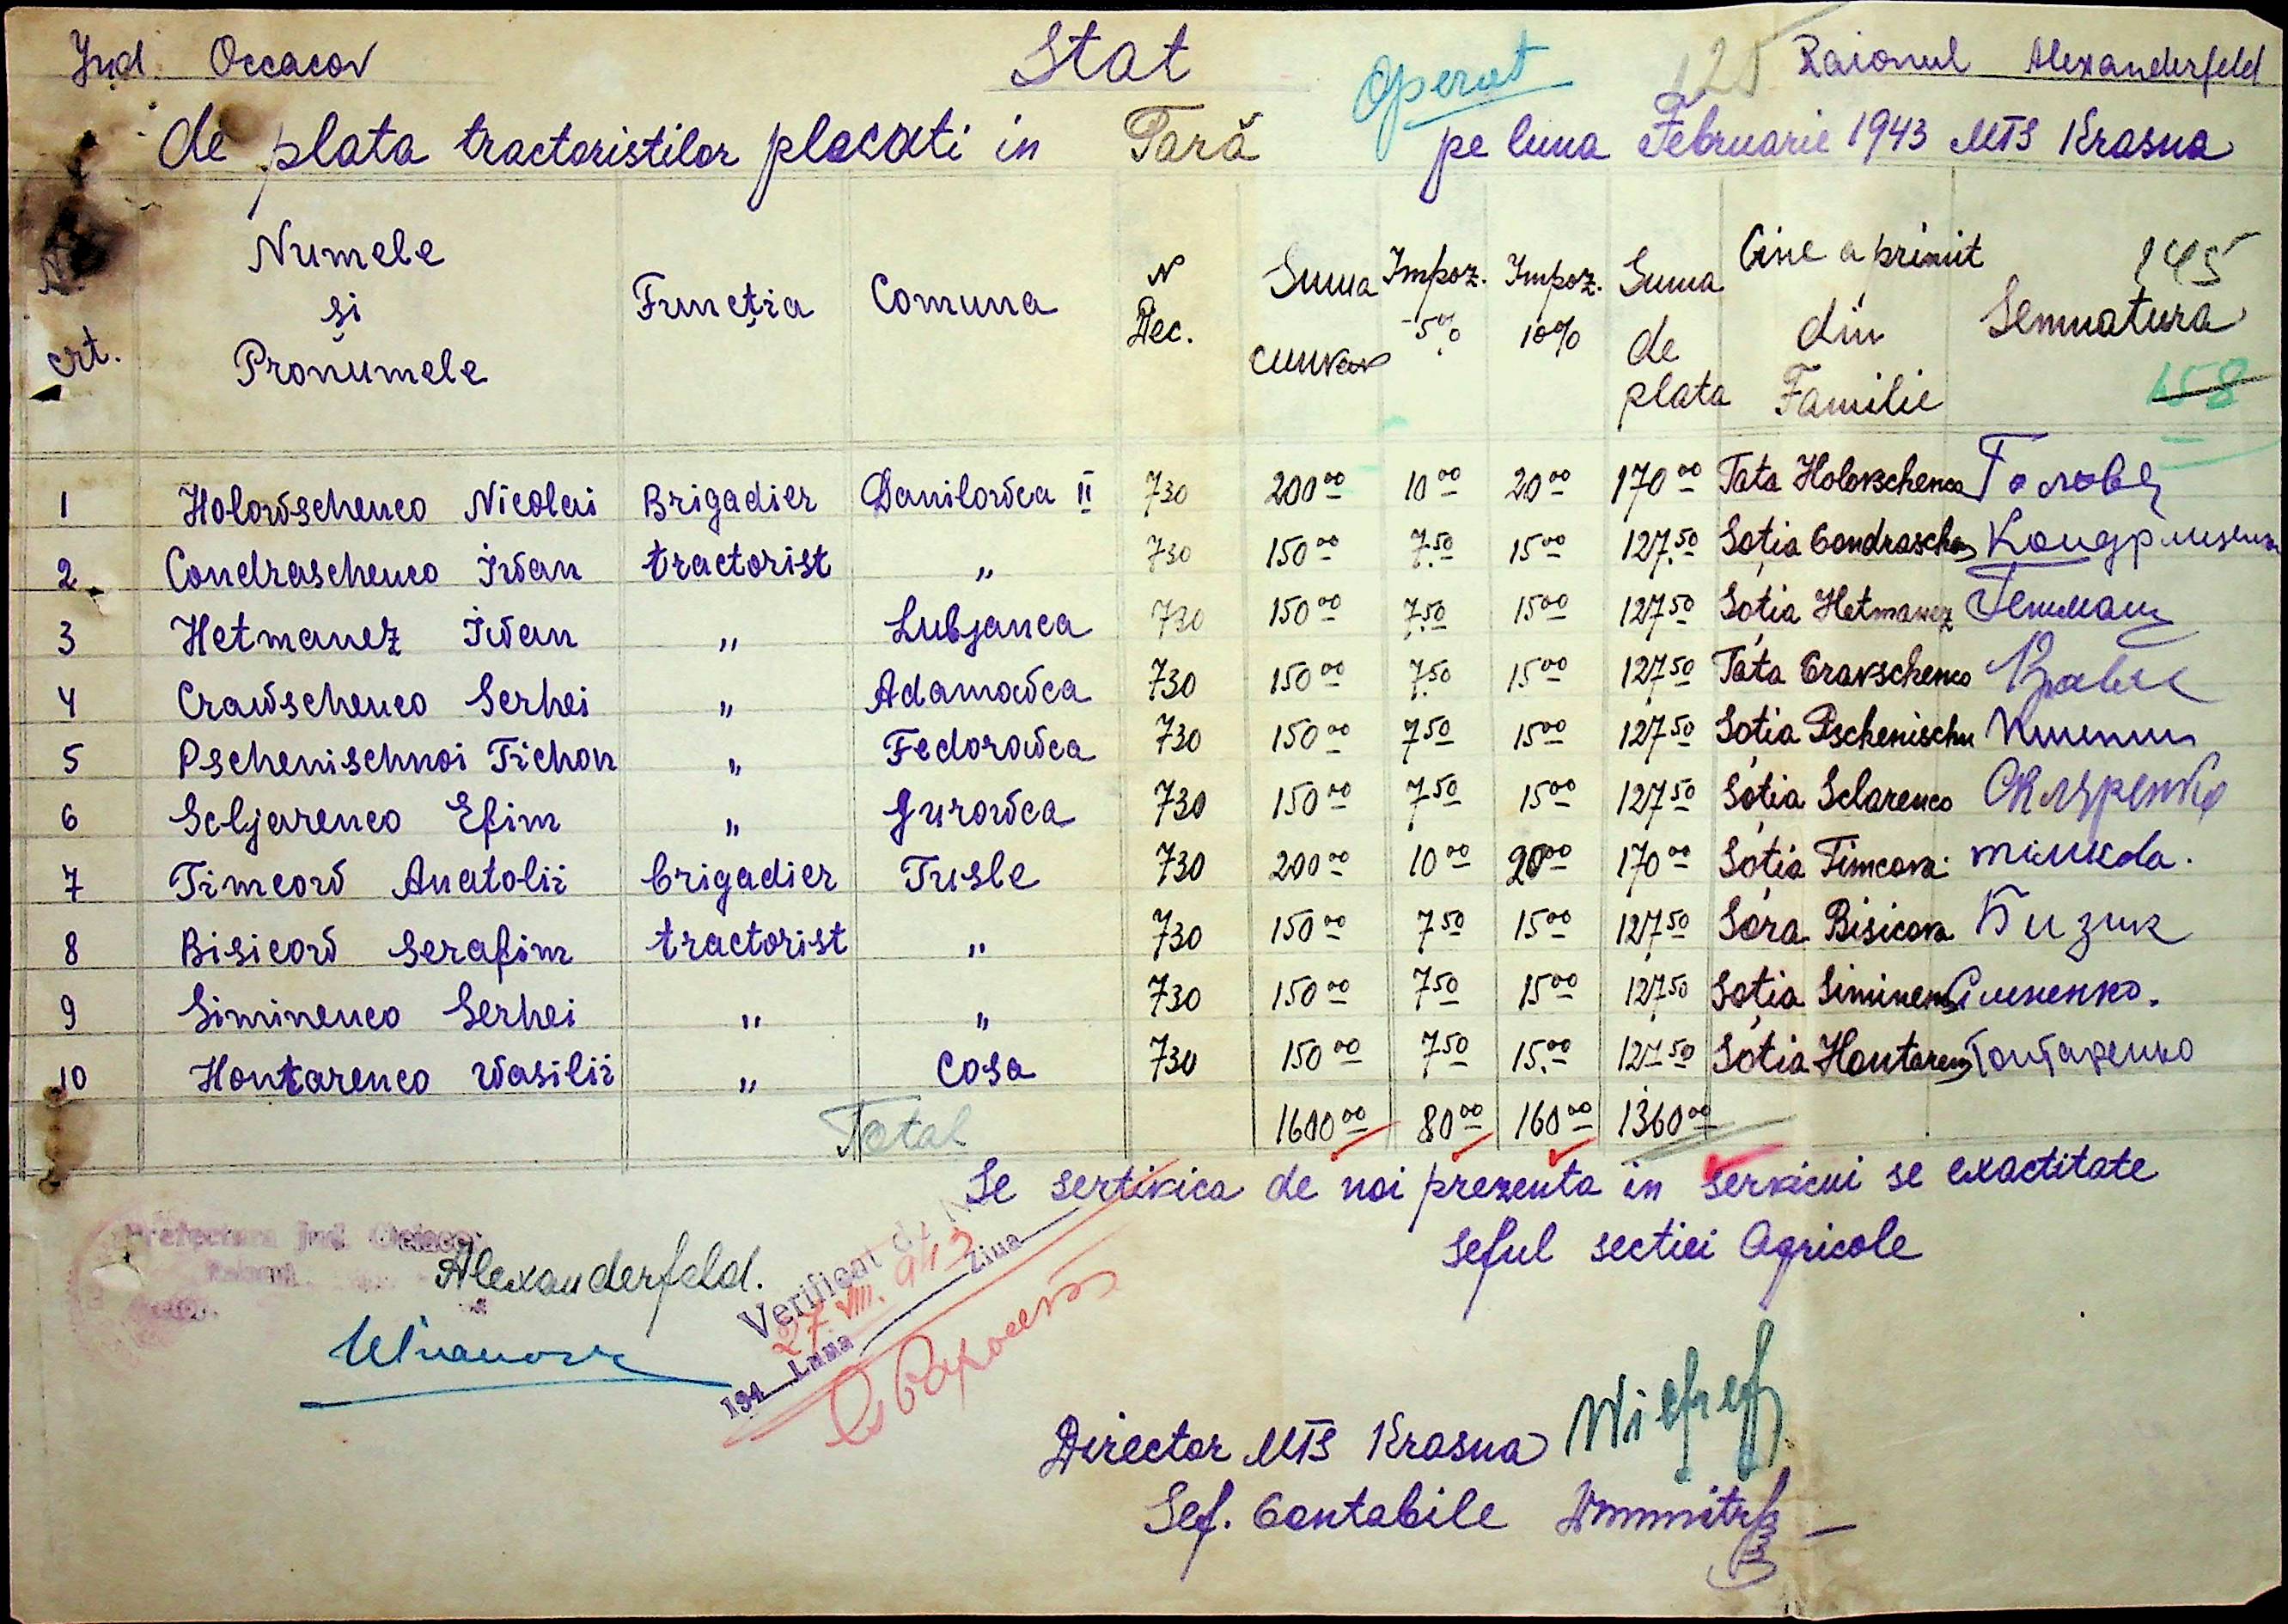 Jud. Occacov Stat Operat 125 Raionul Alexanderfeld
de plata tractoristilor placati in Tară pe luna Februarie 1943 MTS Krasna
crt. Numele si Pronumele Funcția Comuna N Dec. Suma Impoz. 5% Impoz. 10% Suma de plata Cine a primit din Familie Semnatura
145
158
1 Holowschenco Nicolai Brigadier Danilowca II 730 200 00 10 00 20 00 170 00 Tata Holovschenco Голове
2 Condraschenco Iwan tractorist " 730 150 00 7 50 15 00 127 50 Soția Condraschen Кондращенк
3 Hetmanez Iwan " Lubjanca 730 150 00 7 50 15 00 127 50 Soția Hetmanez Гетманц
4 Crawschenco Serhei " Adamowca 730 150 00 7 50 15 00 127 50 Tata Cravschenco
5 Pschenischnoi Tichon " Fedorowca 730 150 00 7 50 15 00 127 50 Soția Pschenischn
6 Scljarenco Efim " Gurowca 730 150 00 7 50 15 00 127 50 Soția Sclarenco Скляренко
7 Timcow Anatolii brigadier Tusle 730 200 00 10 00 20 00 170 00 Soția Timcova тимкова.
8 Bisicow Serafim tractorist " 730 150 00 7 50 15 00 127 50 Sora Bisicova Бизик
9 Siminenco Serhei " " 730 150 00 7 50 15 00 127 50 Soția Siminenco Сименко.
10 Hontarenco Wasilii " Cosa 730 150 00 7 50 15 00 127 50 Soția Hontarenco Гонтаренко
Total 1600 00 80 00 160 00 1360 00
Se sertivica de noi prezenta in servicui se exactitate
Seful sectiei Agricole
Prefectura jud.
Alexanderfeld.
Verificat de N
27 VIII. 943 Ziua
194 Luna
Director MTS Krasna
Sef. Contabile